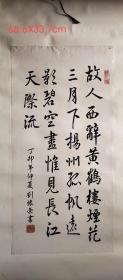 68.6X33.7cm
故人西辭黃鶴樓煙花
三月下揚州孤帆遠
影碧空盡惟見長江
天際流
丁卯年仲夏劉振書